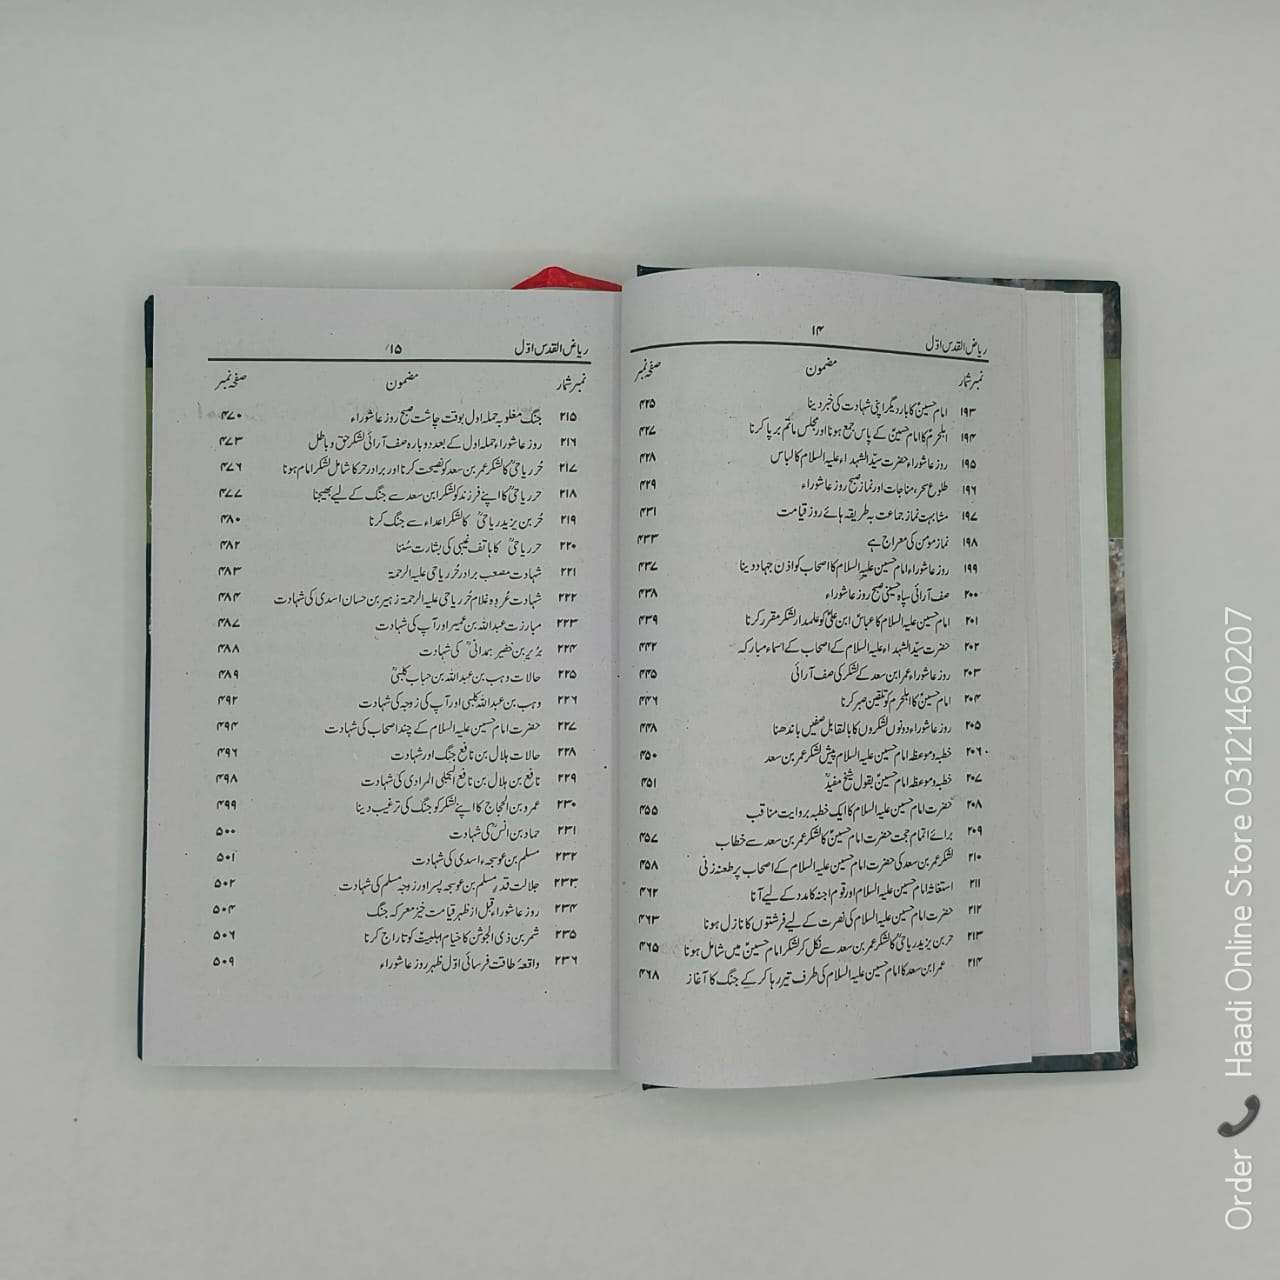 ریاض القدس اوّل ۱۴
نمبر شمار مضمون صفحہ نمبر
۱۹۳ امام حسینؑ کا بار دیگر اپنی شہادت کی خبر دینا ۴۲۵
۱۹۴ اہلحرمؑ کا امام حسینؑ کے پاس جمع ہونا اور مجلس ماتم برپا کرنا ۴۲۷
۱۹۵ روز عاشوراء حضرت سیّد الشہداء علیہ السلام کا لباس ۴۲۸
۱۹۶ طلوع سحر، مناجات اور نماز صبح روز عاشوراء ۴۲۹
۱۹۷ مشابہت نماز جماعت بہ طریقہ ہائے روز قیامت ۴۳۱
۱۹۸ نماز مومن کی معراج ہے ۴۳۳
۱۹۹ روز عاشوراء امام حسین علیہ السلام کا اصحاب کو اذن جہاد دینا ۴۳۷
۲۰۰ صف آرائی سپاہ حسینی صبح روز عاشوراء ۴۳۸
۲۰۱ امام حسین علیہ السلام کا عباسؑ ابن علیؑ کو علمدار لشکر مقرر کرنا ۴۳۹
۲۰۲ حضرت سیّد الشہداء علیہ السلام کے اصحاب کے اسماء مبارکہ ۴۴۲
۲۰۳ روز عاشوراء عمر ابن سعد کے لشکر کی صف آرائی ۴۴۵
۲۰۴ امام حسینؑ کا اہلحرم کو تلقین صبر کرنا ۴۴۶
۲۰۵ روز عاشوراء دونوں لشکروں کا بالمقابل صفیں باندھنا ۴۴۸
۲۰۶ خطبہ و موعظہ امام حسین علیہ السلام پیش لشکر عمر بن سعد ۴۵۰
۲۰۷ خطبہ و موعظہ امام حسینؑ بقول شیخ مفیدؒ ۴۵۱
۲۰۸ حضرت امام حسین علیہ السلام کا ایک خطبہ بروایت مناقب ۴۵۵
۲۰۹ برائے اتمام حجت حضرت امام حسینؑ کا لشکر عمر بن سعد سے خطاب ۴۵۷
۲۱۰ لشکر عمر بن سعد کی حضرت امام حسین علیہ السلام کے اصحاب پر طعنہ زنی ۴۵۸
۲۱۱ استغاثہ امام حسین علیہ السلام اور قوم اجنہ کا مدد کے لیے آنا ۴۶۲
۲۱۲ حضرت امام حسین علیہ السلام کی نصرت کے لیے فرشتوں کا نازل ہونا ۴۶۳
۲۱۳ حر بن یزید ریاحیؒ کا لشکر عمر بن سعد سے نکل کر لشکر امام حسینؑ میں شامل ہونا ۴۶۵
۲۱۴ عمر ابن سعد کا امام حسین علیہ السلام کی طرف تیر رہا کر کے جنگ کا آغاز ۴۶۸
ریاض القدس اوّل ۱۵
نمبر شمار مضمون صفحہ نمبر
۲۱۵ جنگ مغلوبہ حملہ اول بوقت چاشت صبح روز عاشوراء ۴۷۰
۲۱۶ روز عاشوراء حملہ اول کے بعد دوبارہ صف آرائی لشکر حق و باطل ۴۷۳
۲۱۷ حُر ریاحیؒ کا لشکر عمر بن سعد کو نصیحت کرنا اور برادر حر کا شامل لشکر امام ہونا ۴۷۶
۲۱۸ حر ریاحیؒ کا اپنے فرزند کو لشکر ابن سعد سے جنگ کے لیے بھیجنا ۴۷۷
۲۱۹ حُر بن یزید ریاحیؒ کا لشکر اعداء سے جنگ کرنا ۴۸۰
۲۲۰ حر ریاحیؒ کا ہاتف غیبی کی بشارت سُننا ۴۸۲
۲۲۱ شہادت مصعب برادر حُر ریاحی علیہ الرحمۃ ۴۸۳
۲۲۲ شہادت عُروہ غلام حُر ریاحی علیہ الرحمۃ زہیر بن حسان اسدی کی شہادت ۴۸۴
۲۲۳ مبارزت عبداللہ بن عمیر اور آپ کی شہادت ۴۸۷
۲۲۴ بُریر بن خضیر ہمدانیؒ کی شہادت ۴۸۸
۲۲۵ حالات وہب بن عبداللہ بن حباب کلبیؒ ۴۸۹
۲۲۶ وہب بن عبداللہ کلبی اور آپ کی زوجہ کی شہادت ۴۹۲
۲۲۷ حضرت امام حسین علیہ السلام کے چند اصحاب کی شہادت ۴۹۴
۲۲۸ حالات ہلال بن نافع جنگ اور شہادت ۴۹۶
۲۲۹ نافع بن ہلال بن نافع البجلی المرادی کی شہادت ۴۹۸
۲۳۰ عمرو بن الحجاج کا اپنے لشکر کو جنگ کی ترغیب دینا ۴۹۹
۲۳۱ حماد بن انسؓ کی شہادت ۵۰۰
۲۳۲ مسلم بن عوسجہ اسدی کی شہادت ۵۰۱
۲۳۳ جلالت قدر مسلم بن عوسجہ پسر اور زوجہ مسلم کی شہادت ۵۰۲
۲۳۴ روز عاشوراء قبل از ظہر قیامت خیز معرکہ جنگ ۵۰۴
۲۳۵ شمر بن ذی الجوشن کا خیام اہلبیتؑ کو تاراج کرنا ۵۰۶
۲۳۶ واقعۂ طاقت فرسائی اوّل ظہر روز عاشوراء ۵۰۹
Order Haadi Online Store 03121460207